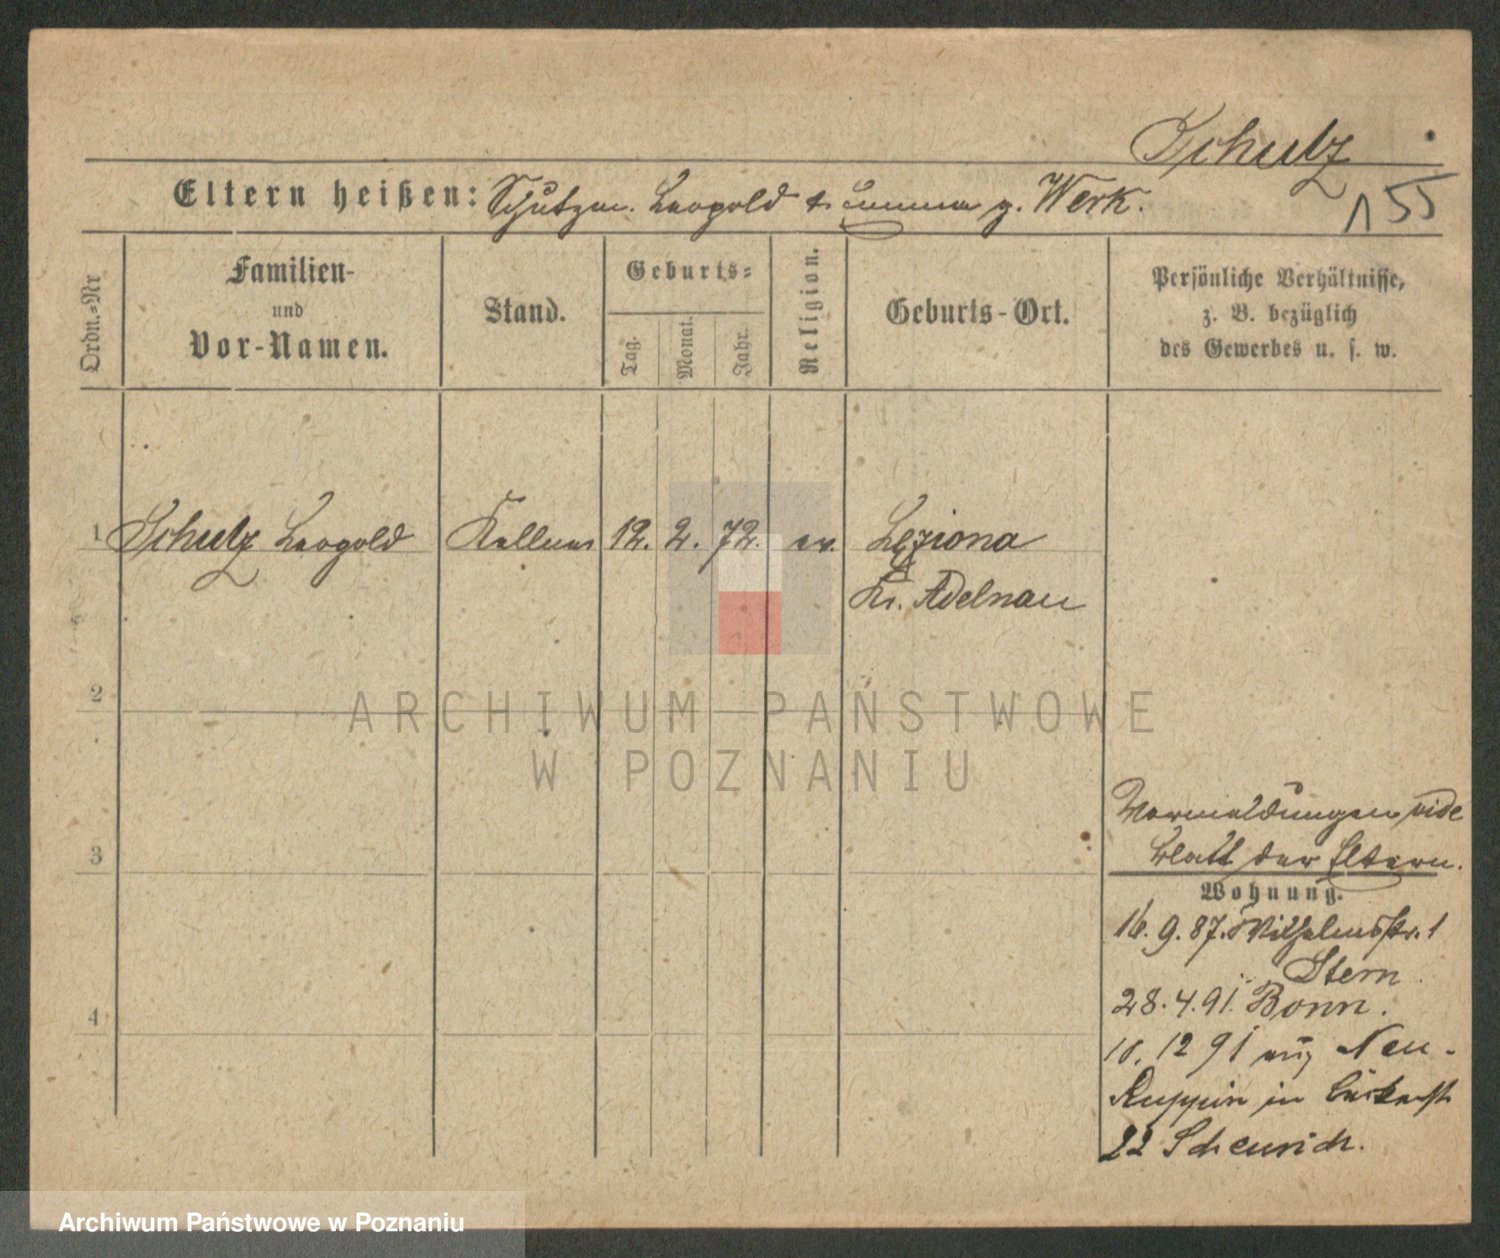 Schulz
Eltern heißen: Schutzm. Leopold & Emma g. Werk.
155
Ordn.-Nr
Familien-
und
Vor-Namen.
Stand.
Geburts-
Tag.
Monat.
Jahr.
Religion.
Geburts-Ort.
Persönliche Verhältnisse,
z. B. bezüglich
des Gewerbes u. s. w.
1 Schulz Leopold Kellner 12. 2. 72. ev. Leziona
Kr. Adelnau
2
ARCHIWUM PAŃSTWOWE
W POZNANIU
Vormeldungen vide
3 Blatt der Eltern.
Wohnung.
16. 9. 87. Wilhelmsstr. 1
Stern
4 28. 4. 91. Bonn.
10. 12 91 aus Neu-
Ruppin in
22 Scheurich.
Archiwum Państwowe w Poznaniu